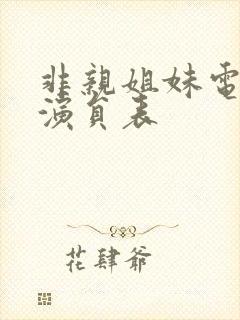 非親姐妹電
演員表
花肆爺